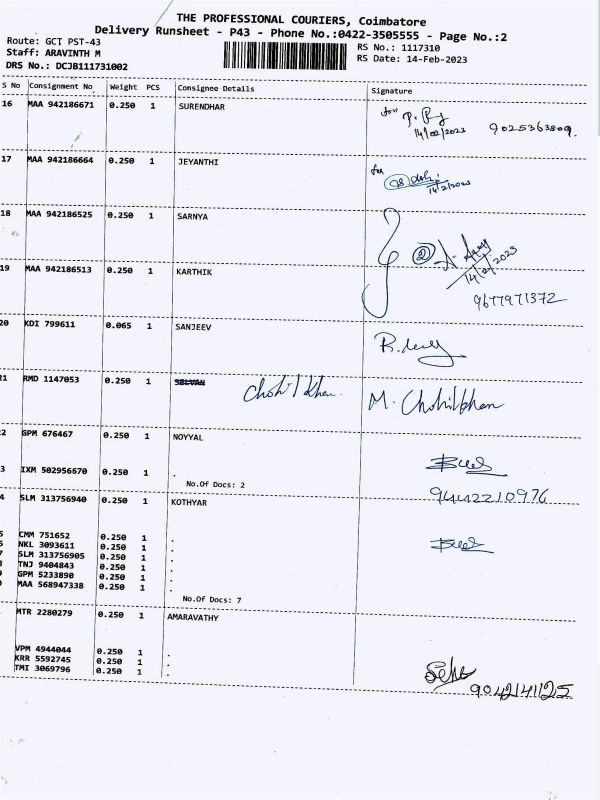 THE PROFESSIONAL COURIERS, Coimbatore
Delivery Runsheet - P43 - Phone No.:0422-3505555 - Page No.:2
Route: GCT PST-43
Staff: ARAVINTH M
DRS No.: DCJB111731002
RS No.: 1117310
RS Date: 14-Feb-2023
S No Consignment No Weight PCS Consignee Details Signature
16 MAA 942186671 0.250 1 SURENDHAR for
14/02/2023 9025363809.
17 MAA 942186664 0.250 1 JEYANTHI for
14/2/2023
18 MAA 942186525 0.250 1 SARNYA
14/2/2023
19 MAA 942186513 0.250 1 KARTHIK
9677971372
20 KDI 799611 0.065 1 SANJEEV
21 RMD 1147053 0.250 1 SELVAN Chohil Khan. M. Chohil khan
2 GPM 676467 0.250 1 NOYYAL
3 IXM 502956670 0.250 1 .
No.Of Docs: 2
9442210976
4 SLM 313756940 0.250 1 KOTHYAR
5 CMM 751652 0.250 1 .
6 NKL 3093611 0.250 1 .
7 SLM 313756905 0.250 1 .
8 TNJ 9404843 0.250 1 .
9 GPM 5233890 0.250 1 .
0 MAA 568947338 0.250 1 .
No.Of Docs: 7
MTR 2280279 0.250 1 AMARAVATHY
VPM 4944044 0.250 1 .
KRR 5592745 0.250 1 .
TMI 3069796 0.250 1 .
9042141125